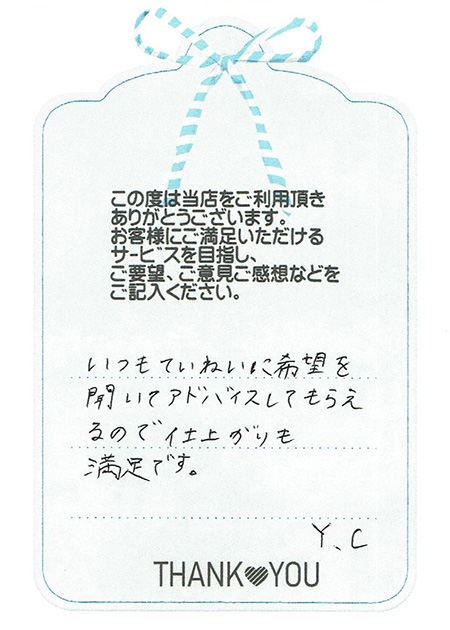 この度は当店をご利用頂き
ありがとうございます。
お客様にご満足いただける
サービスを目指し、
ご要望、ご意見ご感想などを
ご記入ください。
いつもていねいに希望を
聞いてアドバイスしてもらえ
るので仕上がりも
満足です。
Y、C
THANK♥YOU